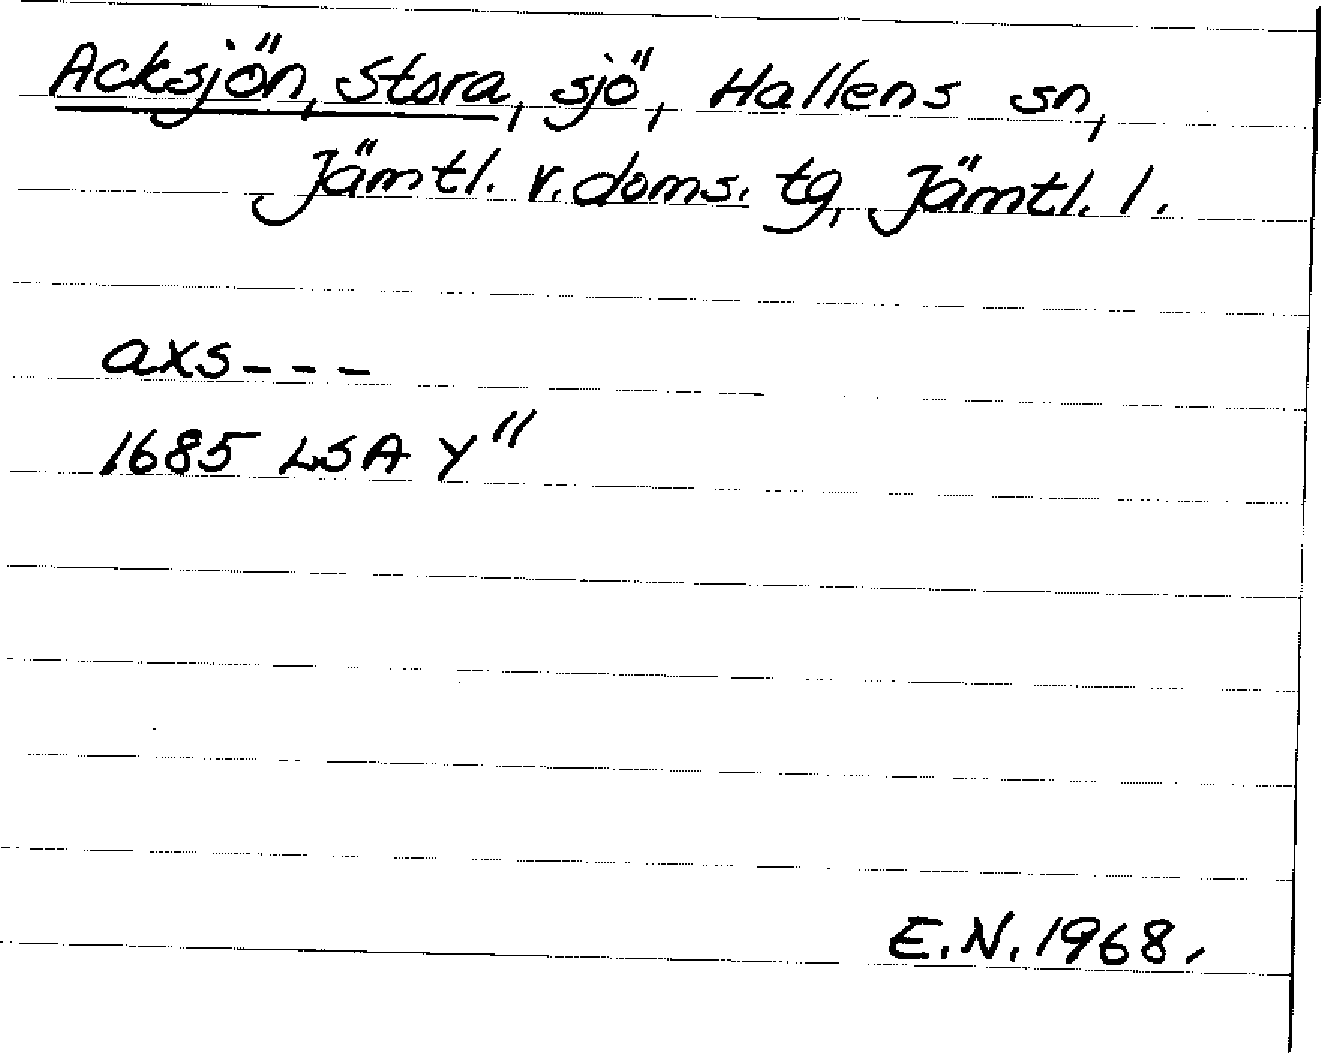 Acksjön, Stora, sjö, Hallens sn,
Jämtl. v. doms. tg, Jämtl. l.
axs---
1685 LSA Y"
E.N. 1968.